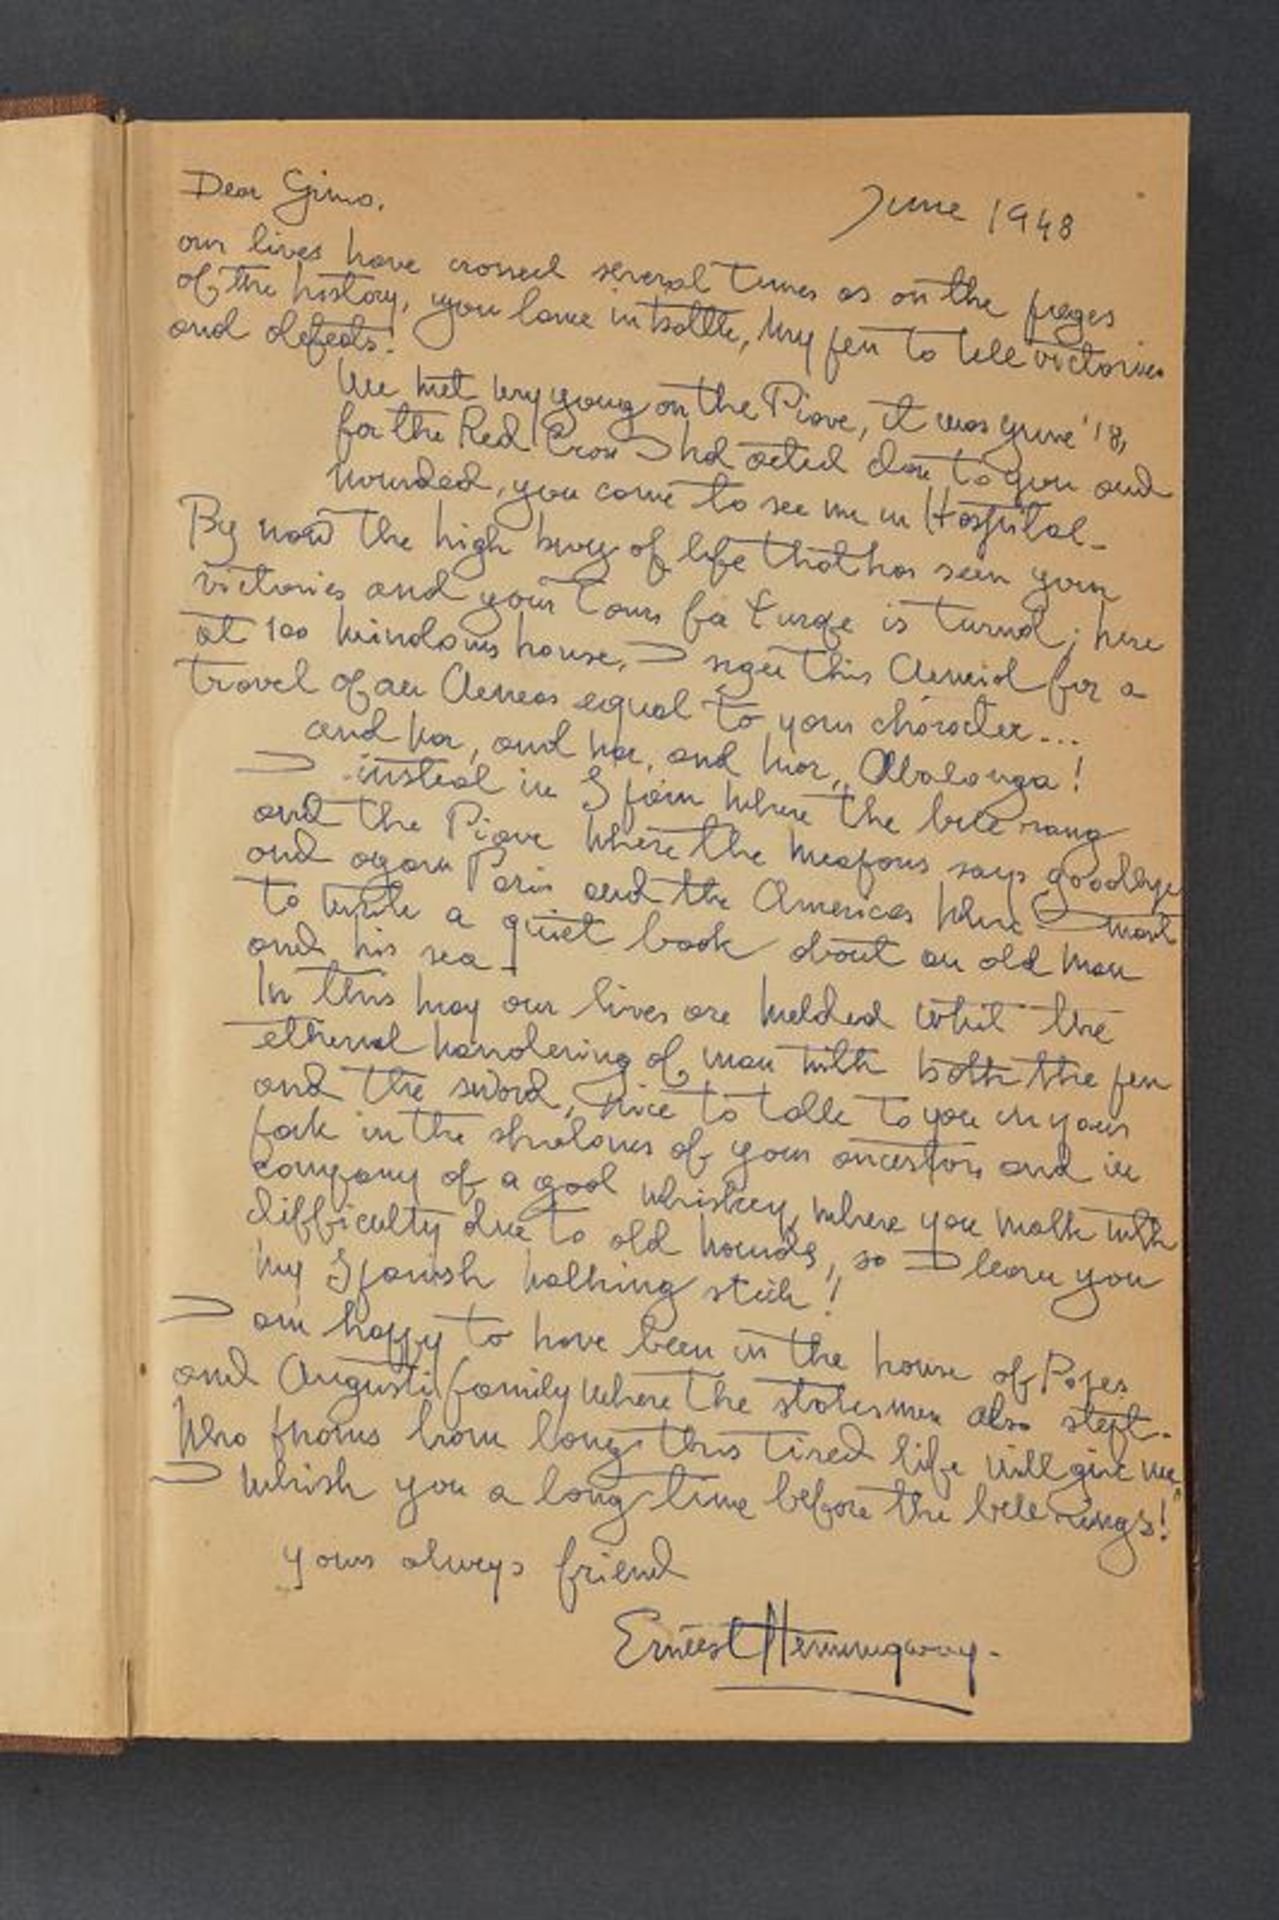 Dear Gino.
June 1948
our lives have crossed several times as on the pages
of the history, you lance in battle, my pen to tell victories
and defeats!
We met very young on the Piave, it was June '18,
for the Red Cross I had acted close to you and
wounded, you came to see me in Hospital -
By now the high buoy of life that has seen your
victories and your Tours is turned; here
at 100 windows house, I sign this Aeneid for a
travel of an Aeneas equal to your character...
and war, and war, and war, Albalonga!
I instead in Spain where the bell rang
and the Piave where the weapons says goodbye
and again Paris and the Americas where I want
to write a quiet book about an old man
and his sea -
In this way our lives are welded whit the
ethernal wandering of man with both the pen
and the sword, nice to talk to you in your
park in the shadows of your ancestors and in
company of a good whiskey, where you walk with
difficulty due to old wounds, so I leave you
my Spanish walking stick!
I am happy to have been in the house of Popes
and Augusti family where the statesmen also slept -
Who knows how long this tired life will give me,
I whish you a long time before the bell rings!
yours always friend
Ernest Hemingway -